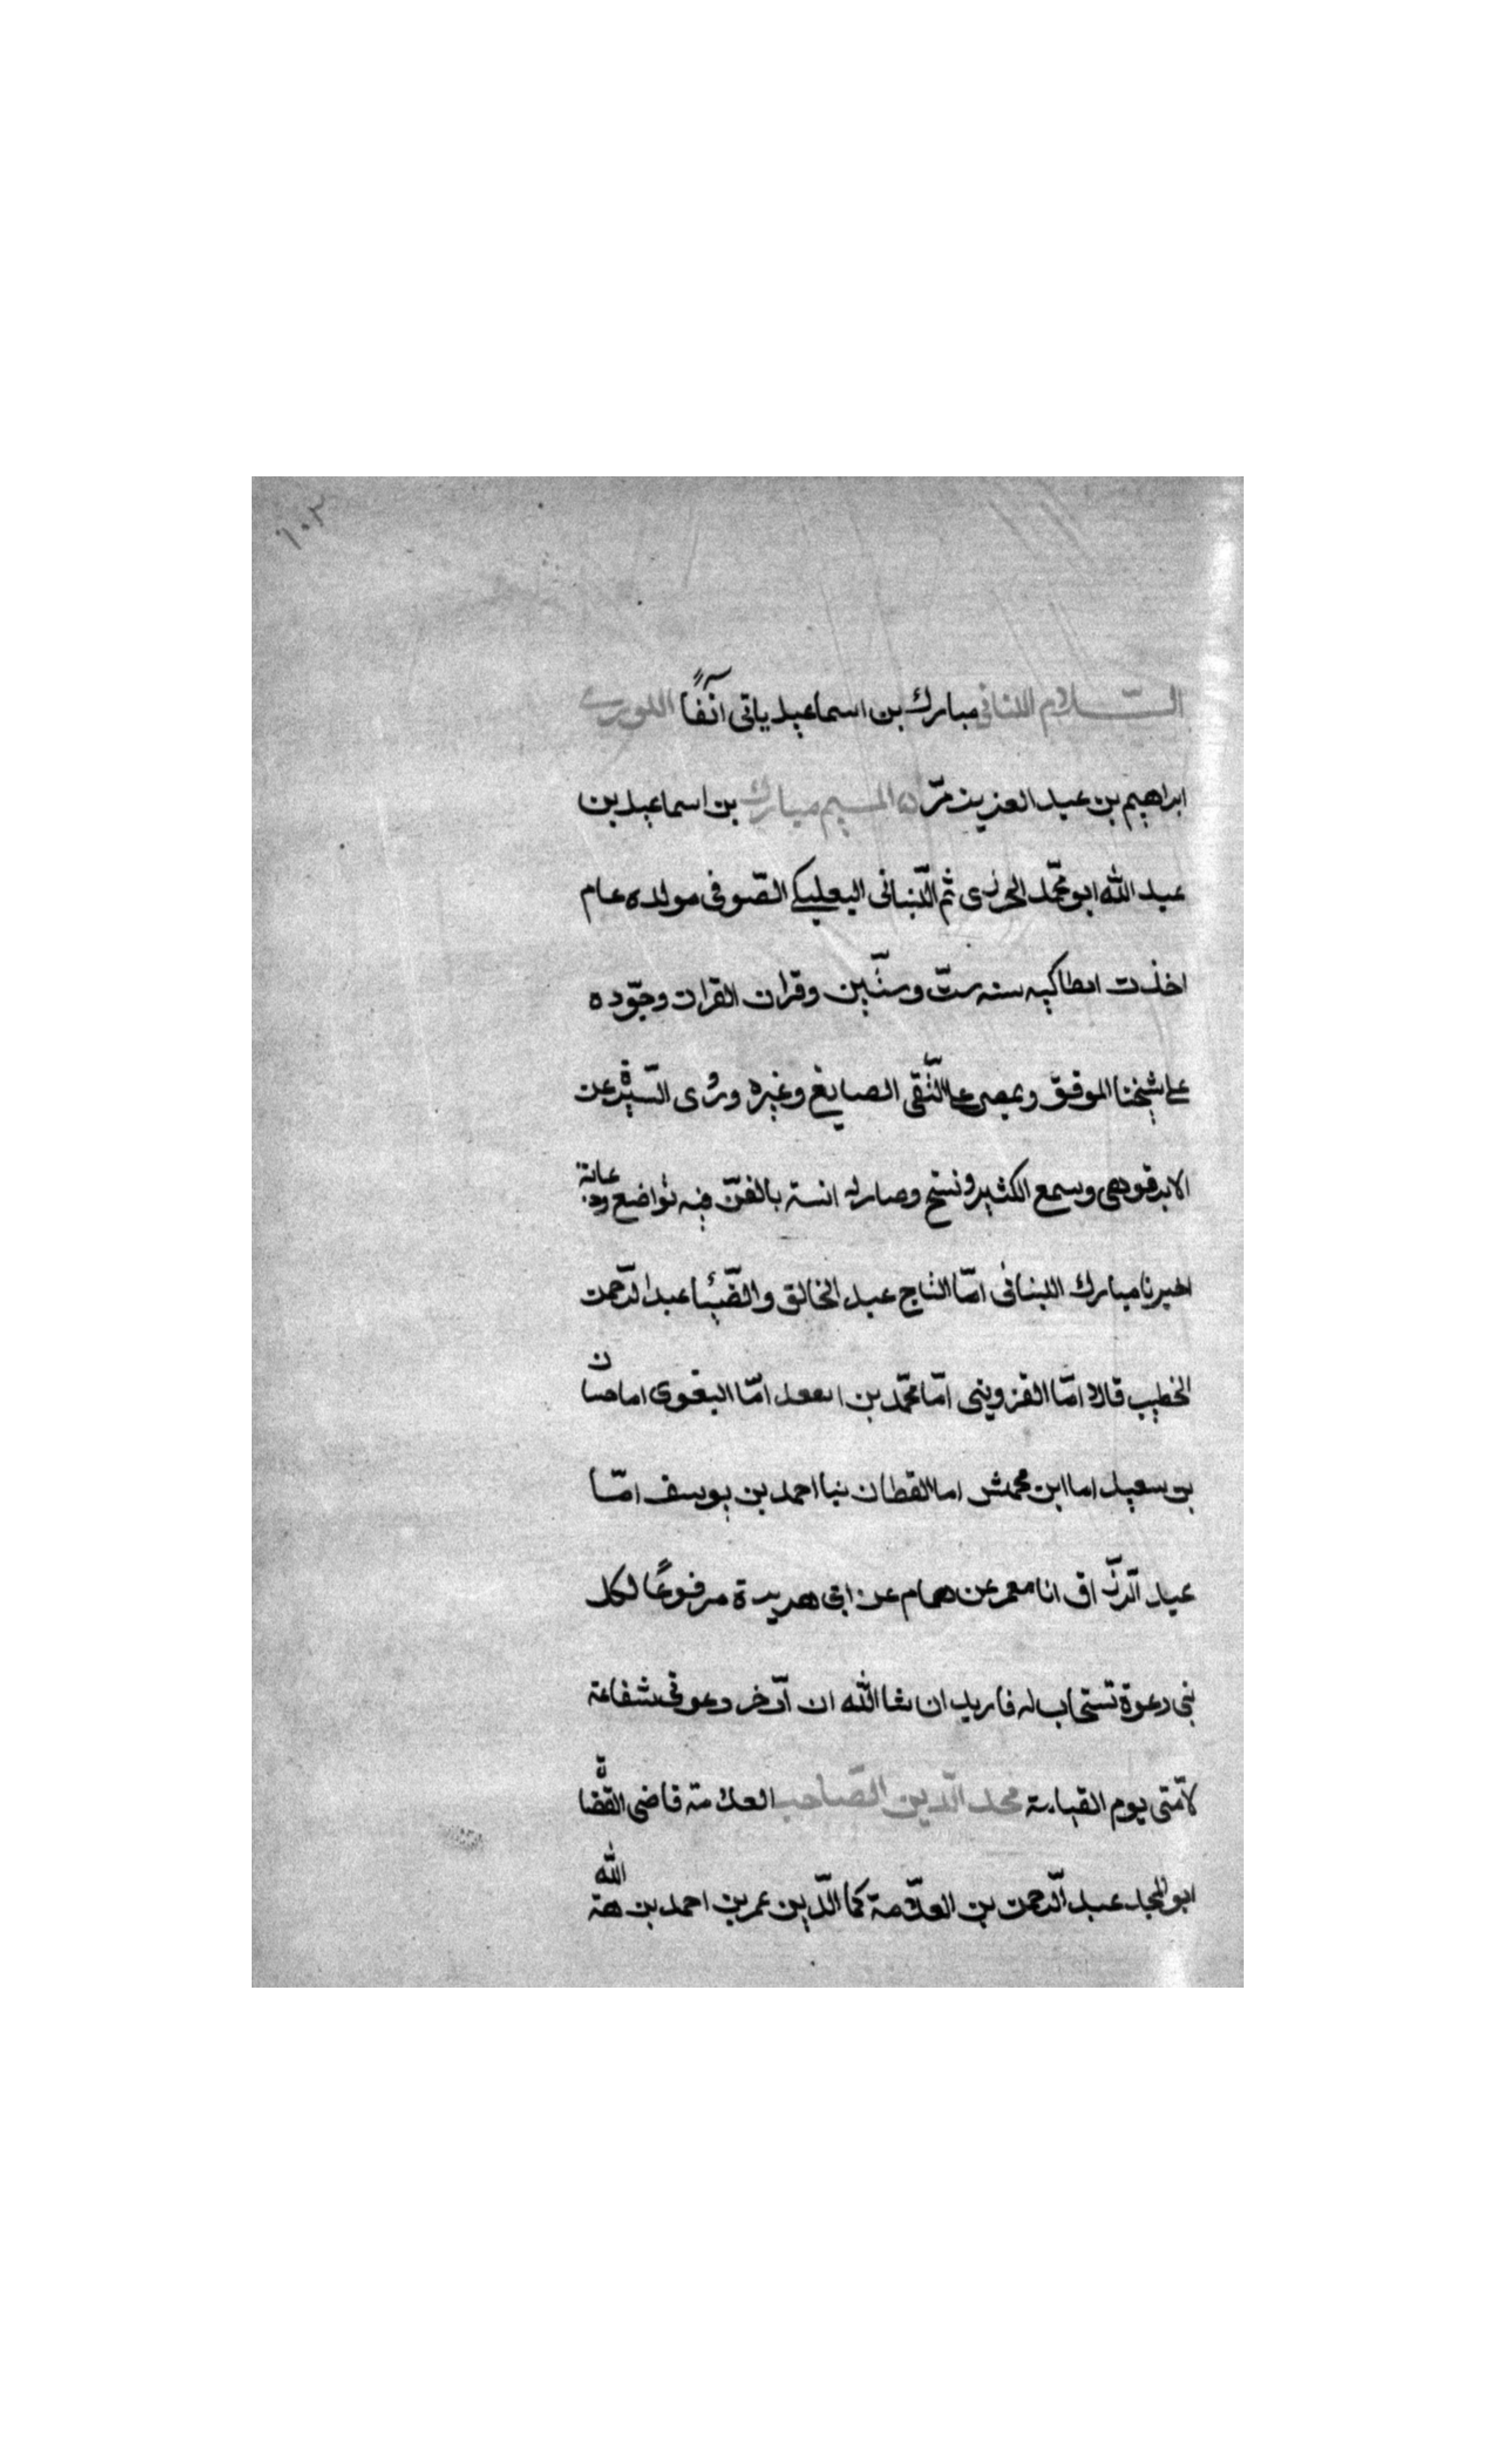 ١٠٣
السلام اللبنانى مبارك بن اسماعيل ياتى آنفًا اللورى
ابراهيم بن عبد العزيز مرّ ه المسيم مبارك بن اسماعيل بن
عبد الله ابو محمّد الحرزى ثم اللّبنانى البعلبكى الصّوفى مولده عام
اخذت انطاكيه سنه ستّ وستّين وقران القران وجوّده
على شيخنا الموفق وبمصر على التّقى الصايغ وغيره وروى السّيرة عن
الابرقوهى وسمع الكثير ونسخ وصار له انسة بالفنّ فيه تواضع
اخبرنا مبارك اللبنانى امّا التاج عبد الخالق والضّيا عبد الرّحمن
الخطيب قالا امّا القزوينى امّا محمّد بن اسعد امّا البغوى اما حسان
بن سعيد اما ابن محمش اما القطان نبا احمد بن يوسف امّا
عبد الرزّاق انا معمر عن همام عن ابى هريرة مرفوعًا لكل
نبى دعوة تستجاب له فاريد ان شا الله ان ادّخر دعوتى شفاعة
لامّتى يوم القيامة مجد الدّين الصّاحب العلامة قاضى القضاة
ابو المجد عبد الرّحمن بن العلّامة كمال الدّين عمر بن احمد بن هبة الله